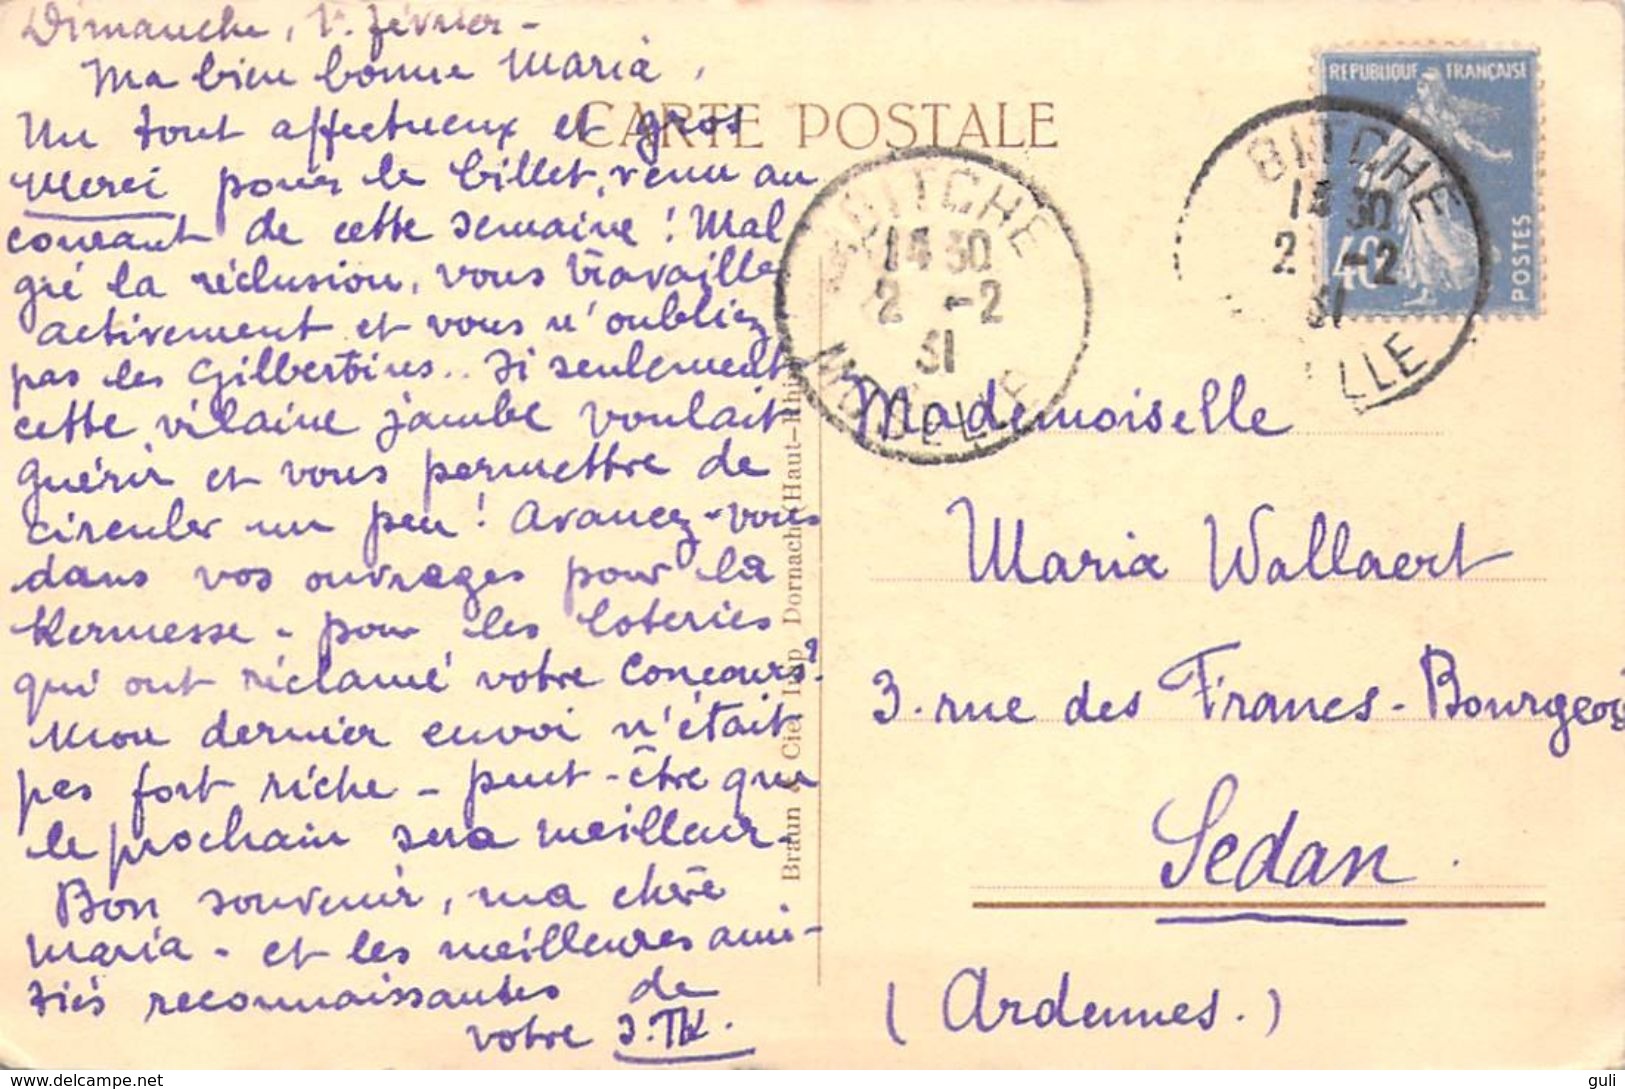 Dimanche, 1r. février -
Ma bien bonne Maria,
Un tout affectueux et gros
Merci pour le billet, venu au
courant de cette semaine ! Mal
gré la réclusion, vous travaillez
activement et vous n'oubliez
pas les Gilbertins.. Si seulement
cette vilaine jambe voulait
guérir et vous permettre de
circuler un peu ! Avancez-vous
dans vos ouvrages pour la
Kermesse - pour les loteries
qui ont réclamé votre concours?
Mon dernier envoi n'était
pas fort riche - peut-être que
le prochain sera meilleur.
Bon souvenir, ma chère
Maria - et les meilleures ami-
tiés reconnaissantes de
votre
CARTE POSTALE
Braun & Cie Imp Dornach (Haut-Rhin)
BITCHE
14 30
2 -2
31
MOSELLE
REPUBLIQUE FRANÇAISE
40
POSTES
BITCHE
14 30
2 -2
31
Mademoiselle
Maria Wallaert
3. rue des Francs-Bourgeois
Sedan.
(Ardennes.)
guli